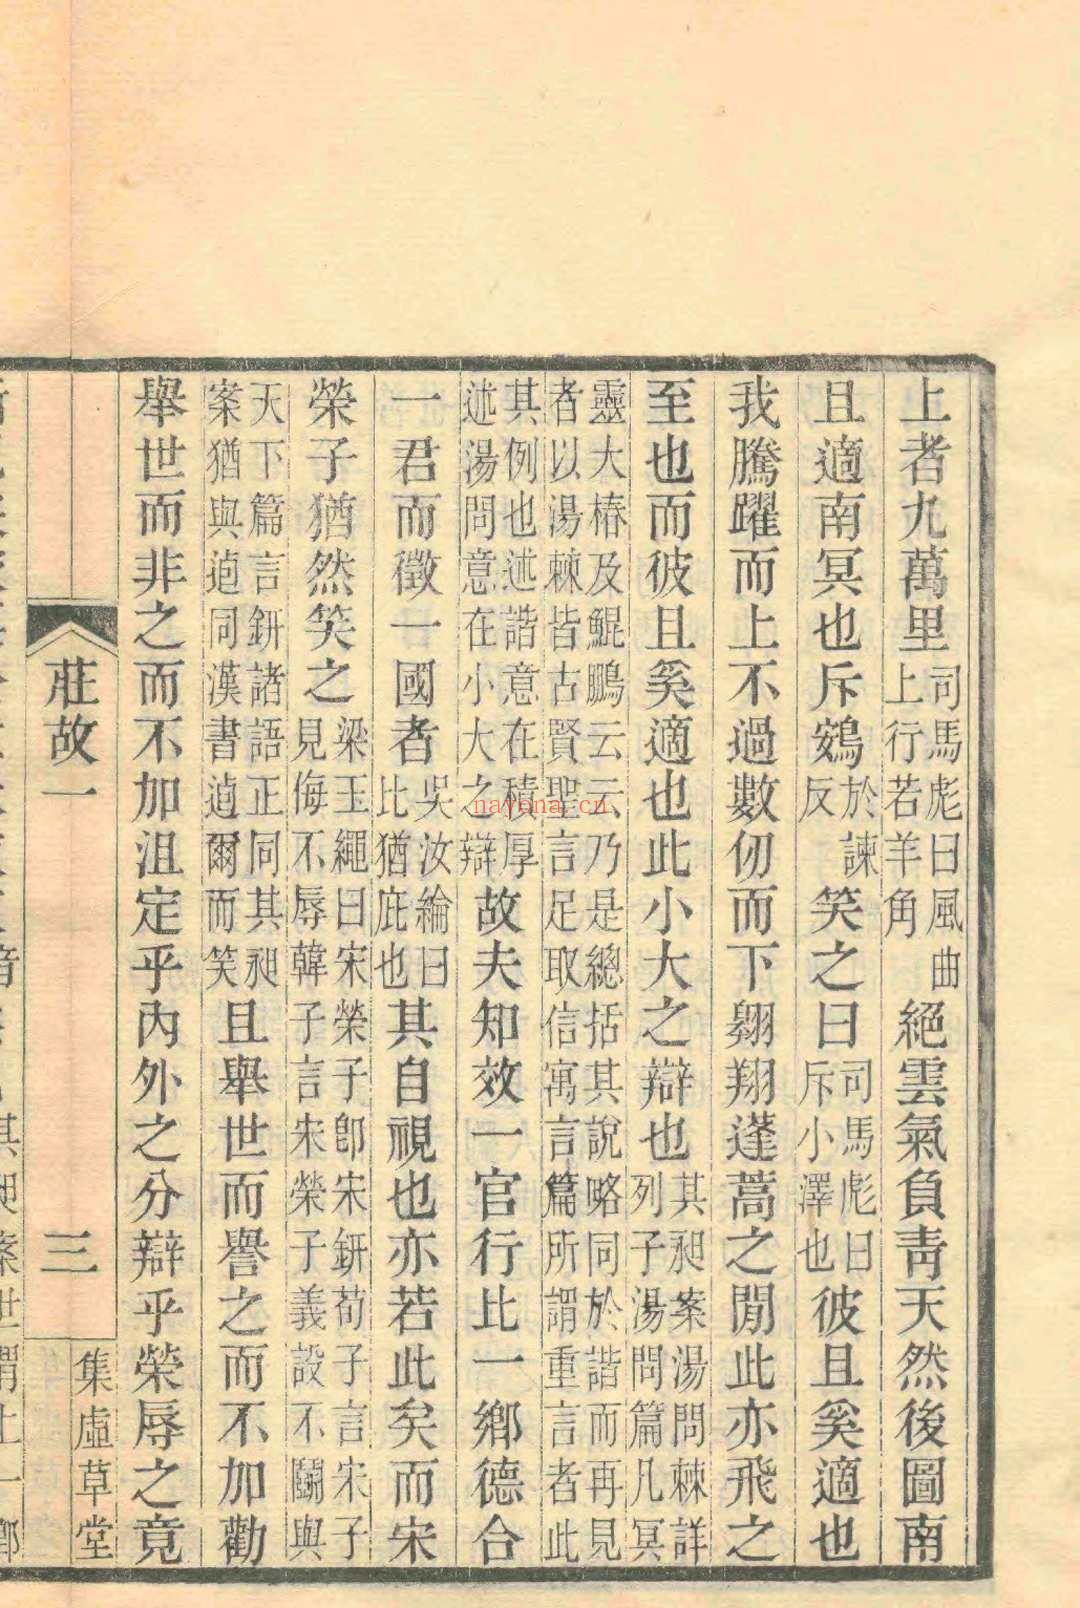 上者九萬里司馬彪曰風曲上行若羊角絕雲氣負青天然後圖南
且適南冥也斥鴳於諫反笑之曰司馬彪曰斥小澤也彼且奚適也
我騰躍而上不過數仞而下翱翔蓬蒿之閒此亦飛之
至也而彼且奚適也此小大之辯也其昶案湯問棘詳列子湯問篇凡冥
靈大椿及鯤鵬云云乃是總括其說略同於諧而再見者以湯棘皆古賢聖言足取信寓言篇所謂重言者此
其例也述諧意在積厚述湯問意在小大之辯故夫知效一官行比一鄉德合
一君而徵一國者吳汝綸曰比猶庇也其自視也亦若此矣而宋
榮子猶然笑之梁玉繩曰宋榮子卽宋鈃荀子言宋子見侮不辱韓子言宋榮子義設不鬭與
天下篇言鈃諸語正同其昶案猶與逌同漢書逌爾而笑且舉世而譽之而不加勸
舉世而非之而不加沮定乎內外之分辯乎榮辱之竟
莊故一
三
集虛草堂
nayona.cn